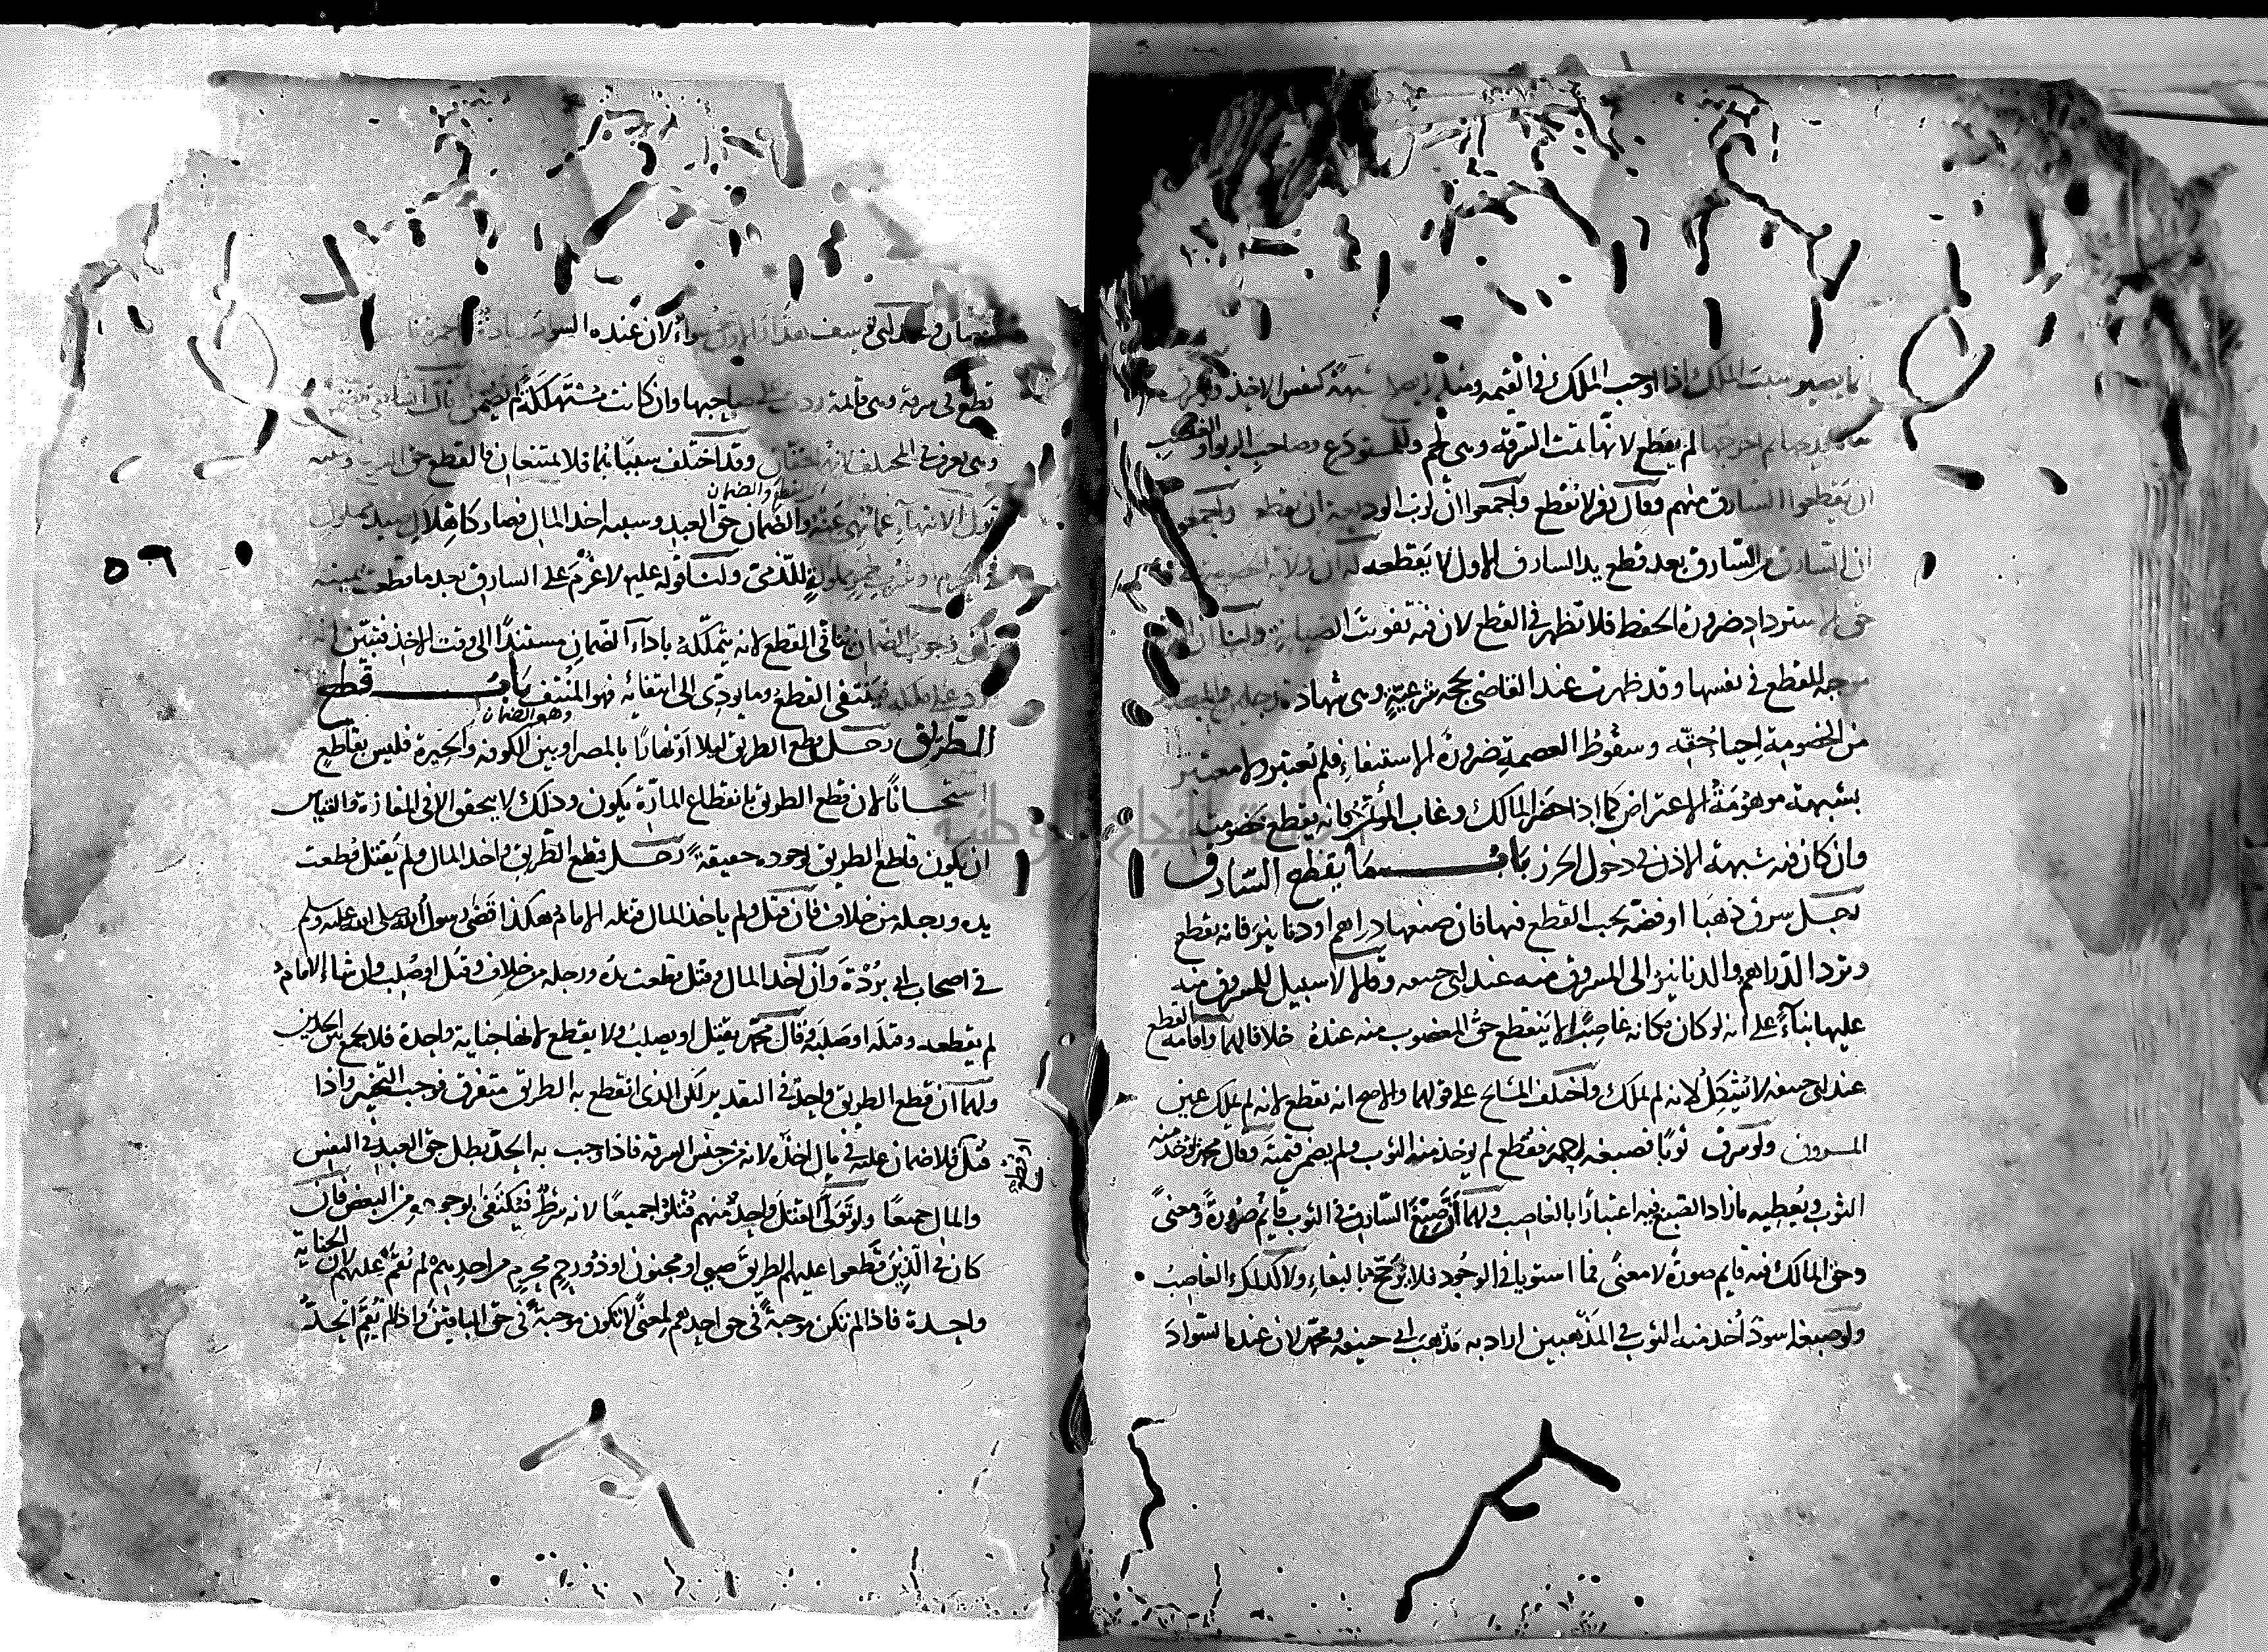 انما يصير سبب الملك اذا اوجب الملك في القيمة ومثله لا يصلح شبهة كنفس الاخذ
ثم اخرجها لم يقطع لانها تمت السرقة وهي لحم وللمستودع وصاحب الربوا والغصب
ان يقطعوا السارق منهم وقال زفر لا تقطع واجمعوا ان لرب الوديعة ان يقطع واجمعوا
ان السارق من السارق بعد قطع يد السارق الاول لا يقطعه له ان ولاية الخصومة
حق الاسترداد ضرورة الحفظ فلا تظهر في القطع لان فيه تفويت الصيانة ولنا ان السرقة
موجبة للقطع في نفسها وقد ظهرت عند القاضي بحجة شرعية وهي شهادة رجلين
من الخصومة احياء حقه وسقوط العصمة ضرورة الاستيفاء فلم تعتبر ولا معتبر
بشبهة موهومة الاعتراض كما اذا حضر المالك وغاب المؤتمن فانه يقطع بخصومته
وان كان فيه شبهة الاذن في دخول الحرز باب ما يقطع السارق
رجل سرق ذهبا او فضة يجب القطع فيها فان صنعها دراهم او دنانير فانه يقطع
وترد الدراهم والدنانير الى المسروق منه عند ابي حنيفة وقالا لا سبيل للمسروق منه
عليها بناء على انه لو كان مكانه غاصبا لا ينقطع حق المغصوب منه عنده خلافا لهما واقامة القطع
عند ابي حنيفة لا تشكل لانه لم يملك واختلف المشايخ على قولهما والاصح انه يقطع لانه لم يملك عين
المسروق ولو سرق ثوبا فصبغه احمر فقطع لم يوخذ منه الثوب ولم يضمن قيمته وقال محمد يوخذ منه
الثوب ويعطيه ما زاد الصبغ فيه اعتبارا بالغاصب ولهما ان صبغ السارق في الثوب قايم صورة ومعنى
وحق المالك فيه قايم صورة لا معنى فما استويا في الوجود فلا يرجح بالبقاء ولا كذلك الغاصب
ولو صبغه اسود اخذ منه الثوب في المذهبين اراد به مذهب ابي حنيفة ومحمد لان عندهما السواد
نقصان وعند ابي يوسف هذا والاول سواء لان عنده السواد زيادة كالحمرة
قطع في سرقة وهي قائمة ردت على صاحبها وان كانت مستهلكة لم يضمن
وهي تعرف في المختلف لانهما حقان وقد اختلف سببا بهما فلا يمتنعان فالقطع حق الشرع وسببه
ترك الانتهاء عما نهي عنه والضمان حق العبد وسببه اخذ المال فصار كاهلاك صيد مملوك
اي القطع والضمان
في الحرم او شرب خمر مملوكة للذمي ولنا قوله عليه لا غرم على السارق بعد ما قطعت يمينه
ولان وجوب الضمان ينافي القطع لانه يتملكه باداء الضمان مستندا الى وقت الاخذ فتبين انه
ورد على ملكه فينتفي القطع وما يودي الى انتفائه فهو المنتفي باب قطع
وهو الضمان
الطريق رجل قطع الطريق ليلا او نهارا بالمصر او بين الكوفة والحيرة فليس بقاطع
استحسانا لان قطع الطريق بانقطاع المارة يكون وذلك لا يتحقق الا في المفازة والقياس
ان يكون قاطع الطريق لوجوده حقيقة رجل قطع الطريق واخذ المال ولم يقتل قطعت
يده ورجله من خلاف فان قتل ولم ياخذ المال قتله الامام هكذا قضى رسول الله صلى الله عليه وسلم
في اصحاب ابي بردة وان اخذ المال وقتل قطعت يده ورجله من خلاف وقتل او صلب وان شاء الامام
لم يقطعه وقتله او صلبه وقال محمد يقتل او يصلب ولا يقطع لانها جناية واحدة فلا يجمع بين الحدين
ولهما ان قطع الطريق واحد في التقدير لكن الذي انقطع به الطريق متفرق فوجب التخير واذا
قتل فلا ضمان عليه في مال اخذه لانه من جنس السرقة فاذا وجب به الحد بطل حق العبد في النفس
والمال جميعا ولو تولى القتل واحد منهم قتلوا جميعا لانه شرط فيكتفى بوجوده من البعض فان
كان في الذين قطعوا عليهم الطريق صبي او مجنون او ذو رحم محرم من احدهم لم تقم عليهم لان الجناية
واحدة فاذا لم تكن موجبة في حق احدهم لمعنى لا تكون موجبة في حق الباقين واذا لم تقم الحد
٥٦